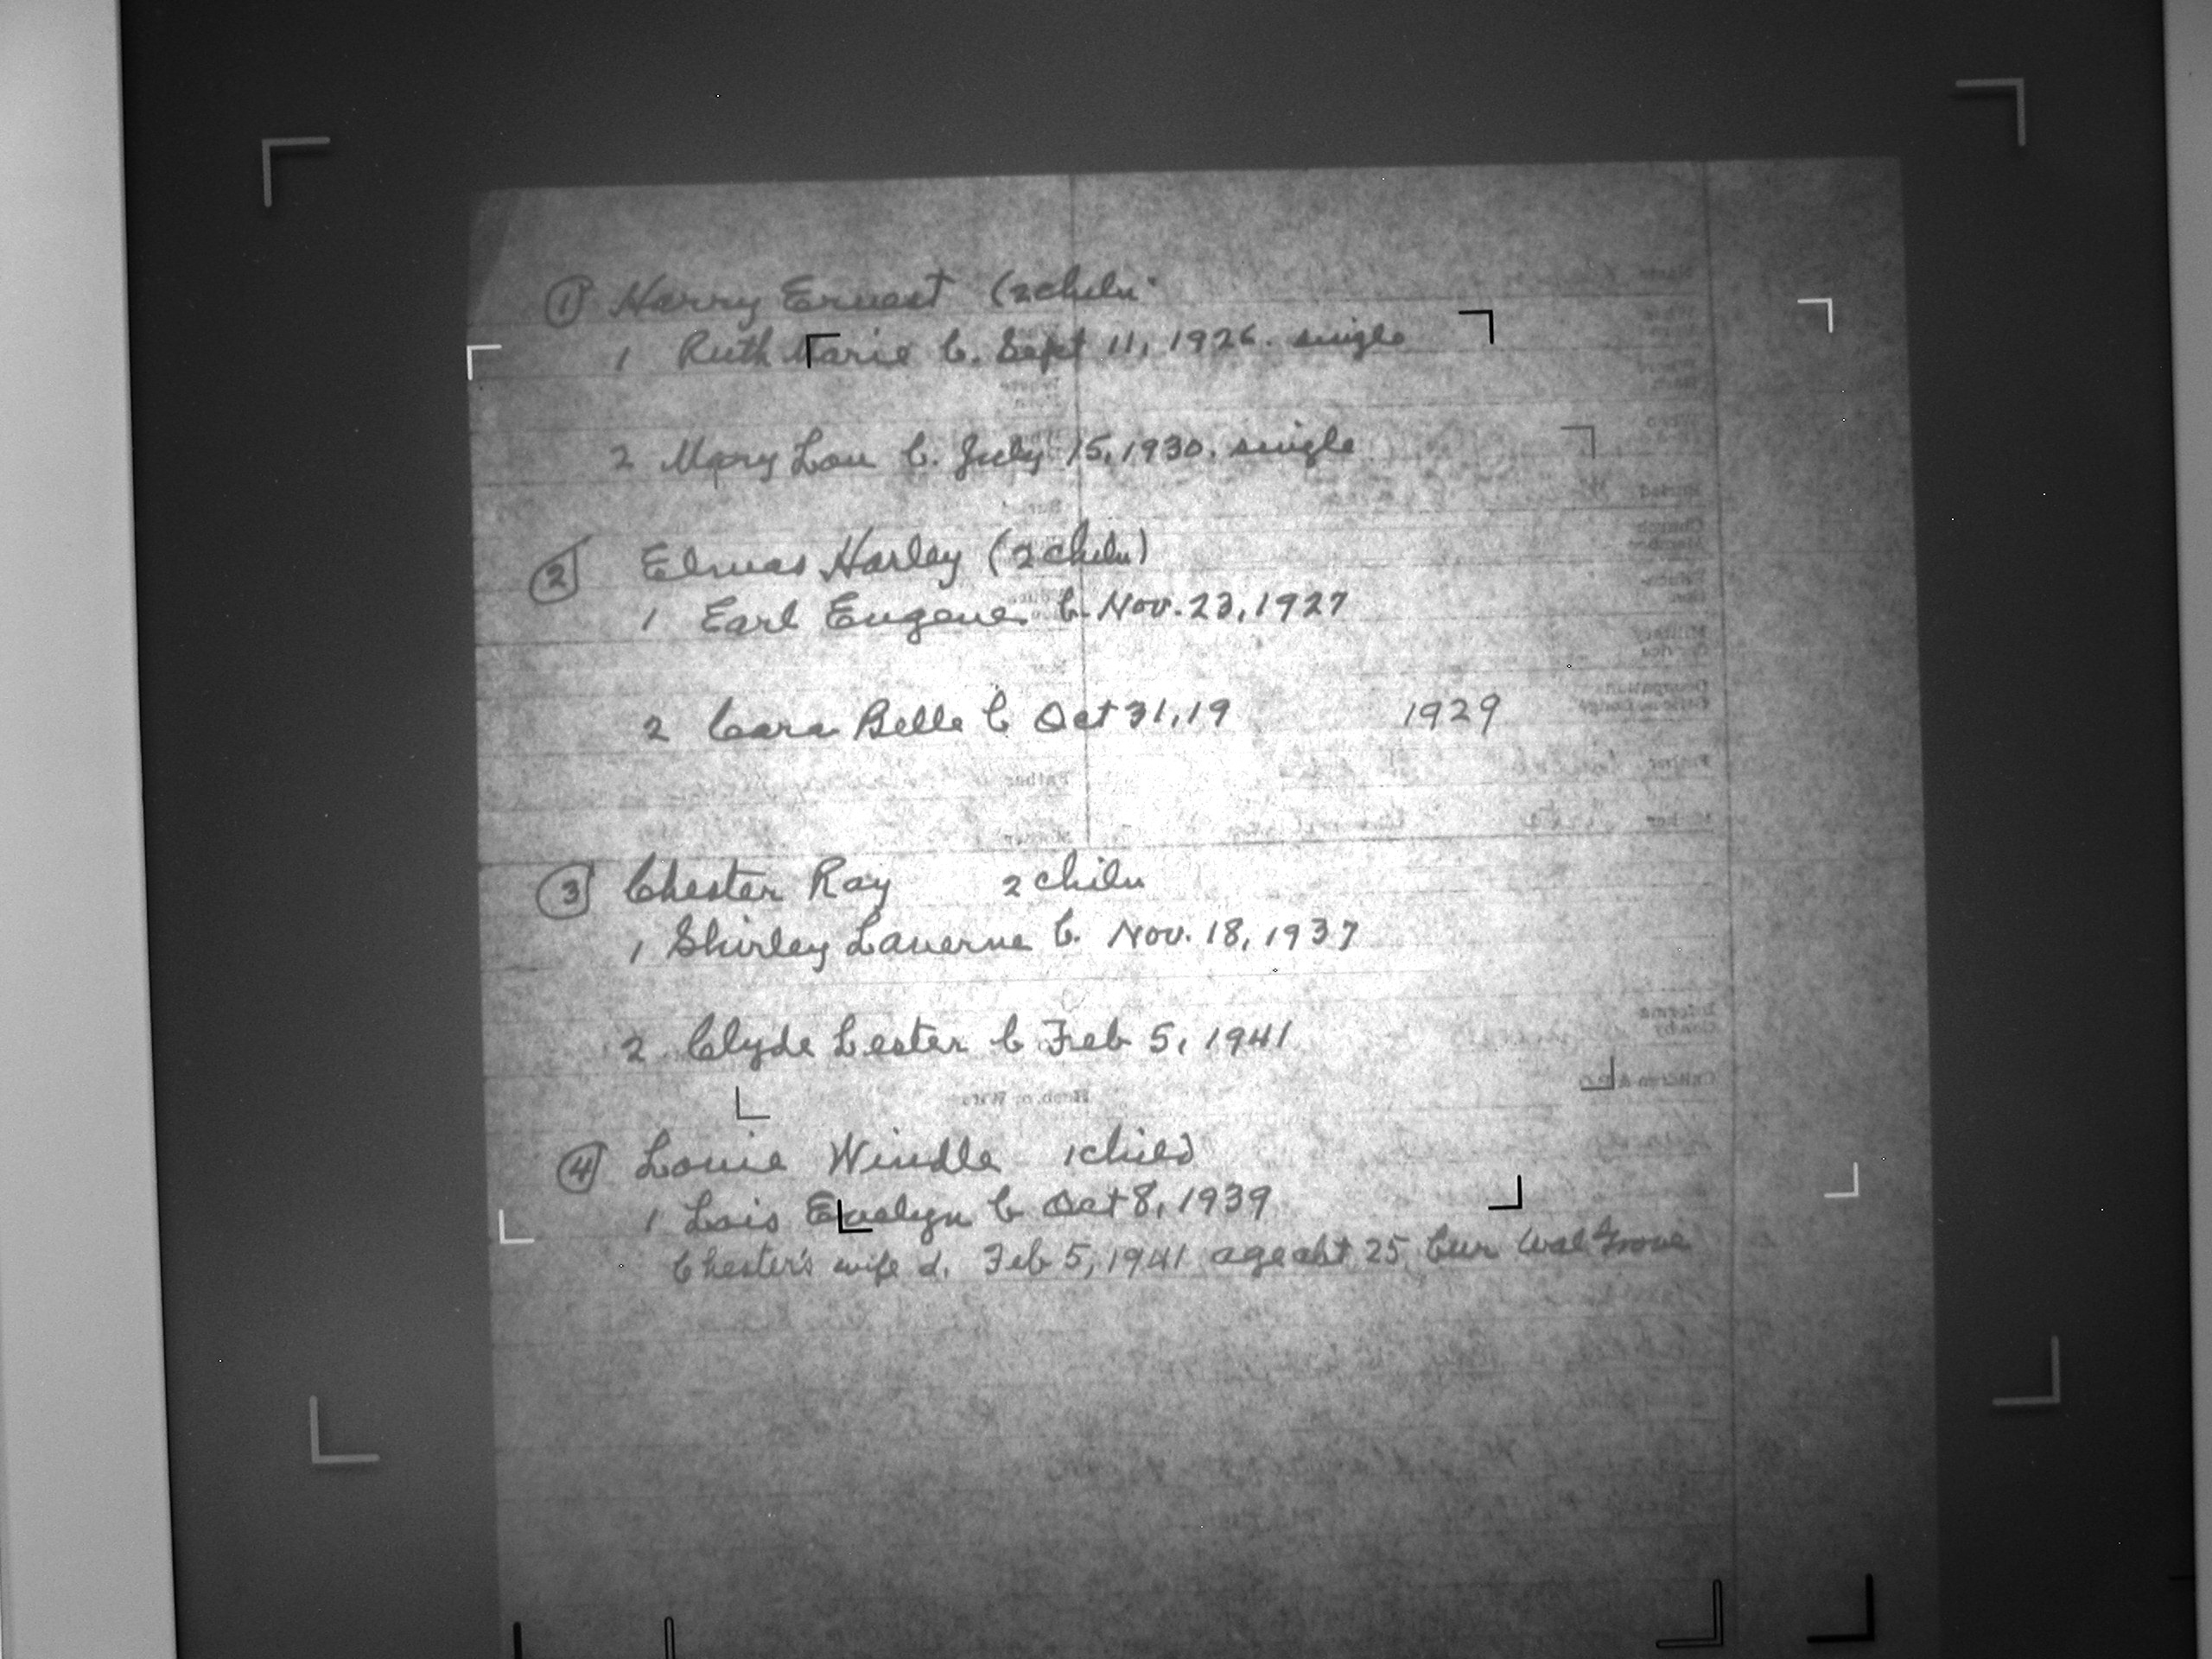 ① Harry Ernest (2 chiln.
1 Ruth Marie b. Sept 11, 1926. single
2 Mary Lou b. July 15, 1930. single
② Harley (2 chiln)
1 Earl Eugene b. Nov. 23, 1927
2 Cara Belle b Oct 31, 19 1929
③ Chester Ray 2 chiln
1 Shirley Laverne b. Nov. 18, 1937
2 Clyde Lester b Feb 5, 1941
④ Louie Windle 1 child
1 Lois Evelyn b Oct 8, 1939
Chester's wife d. Feb 5, 1941 age abt 25 bur Wal Grove